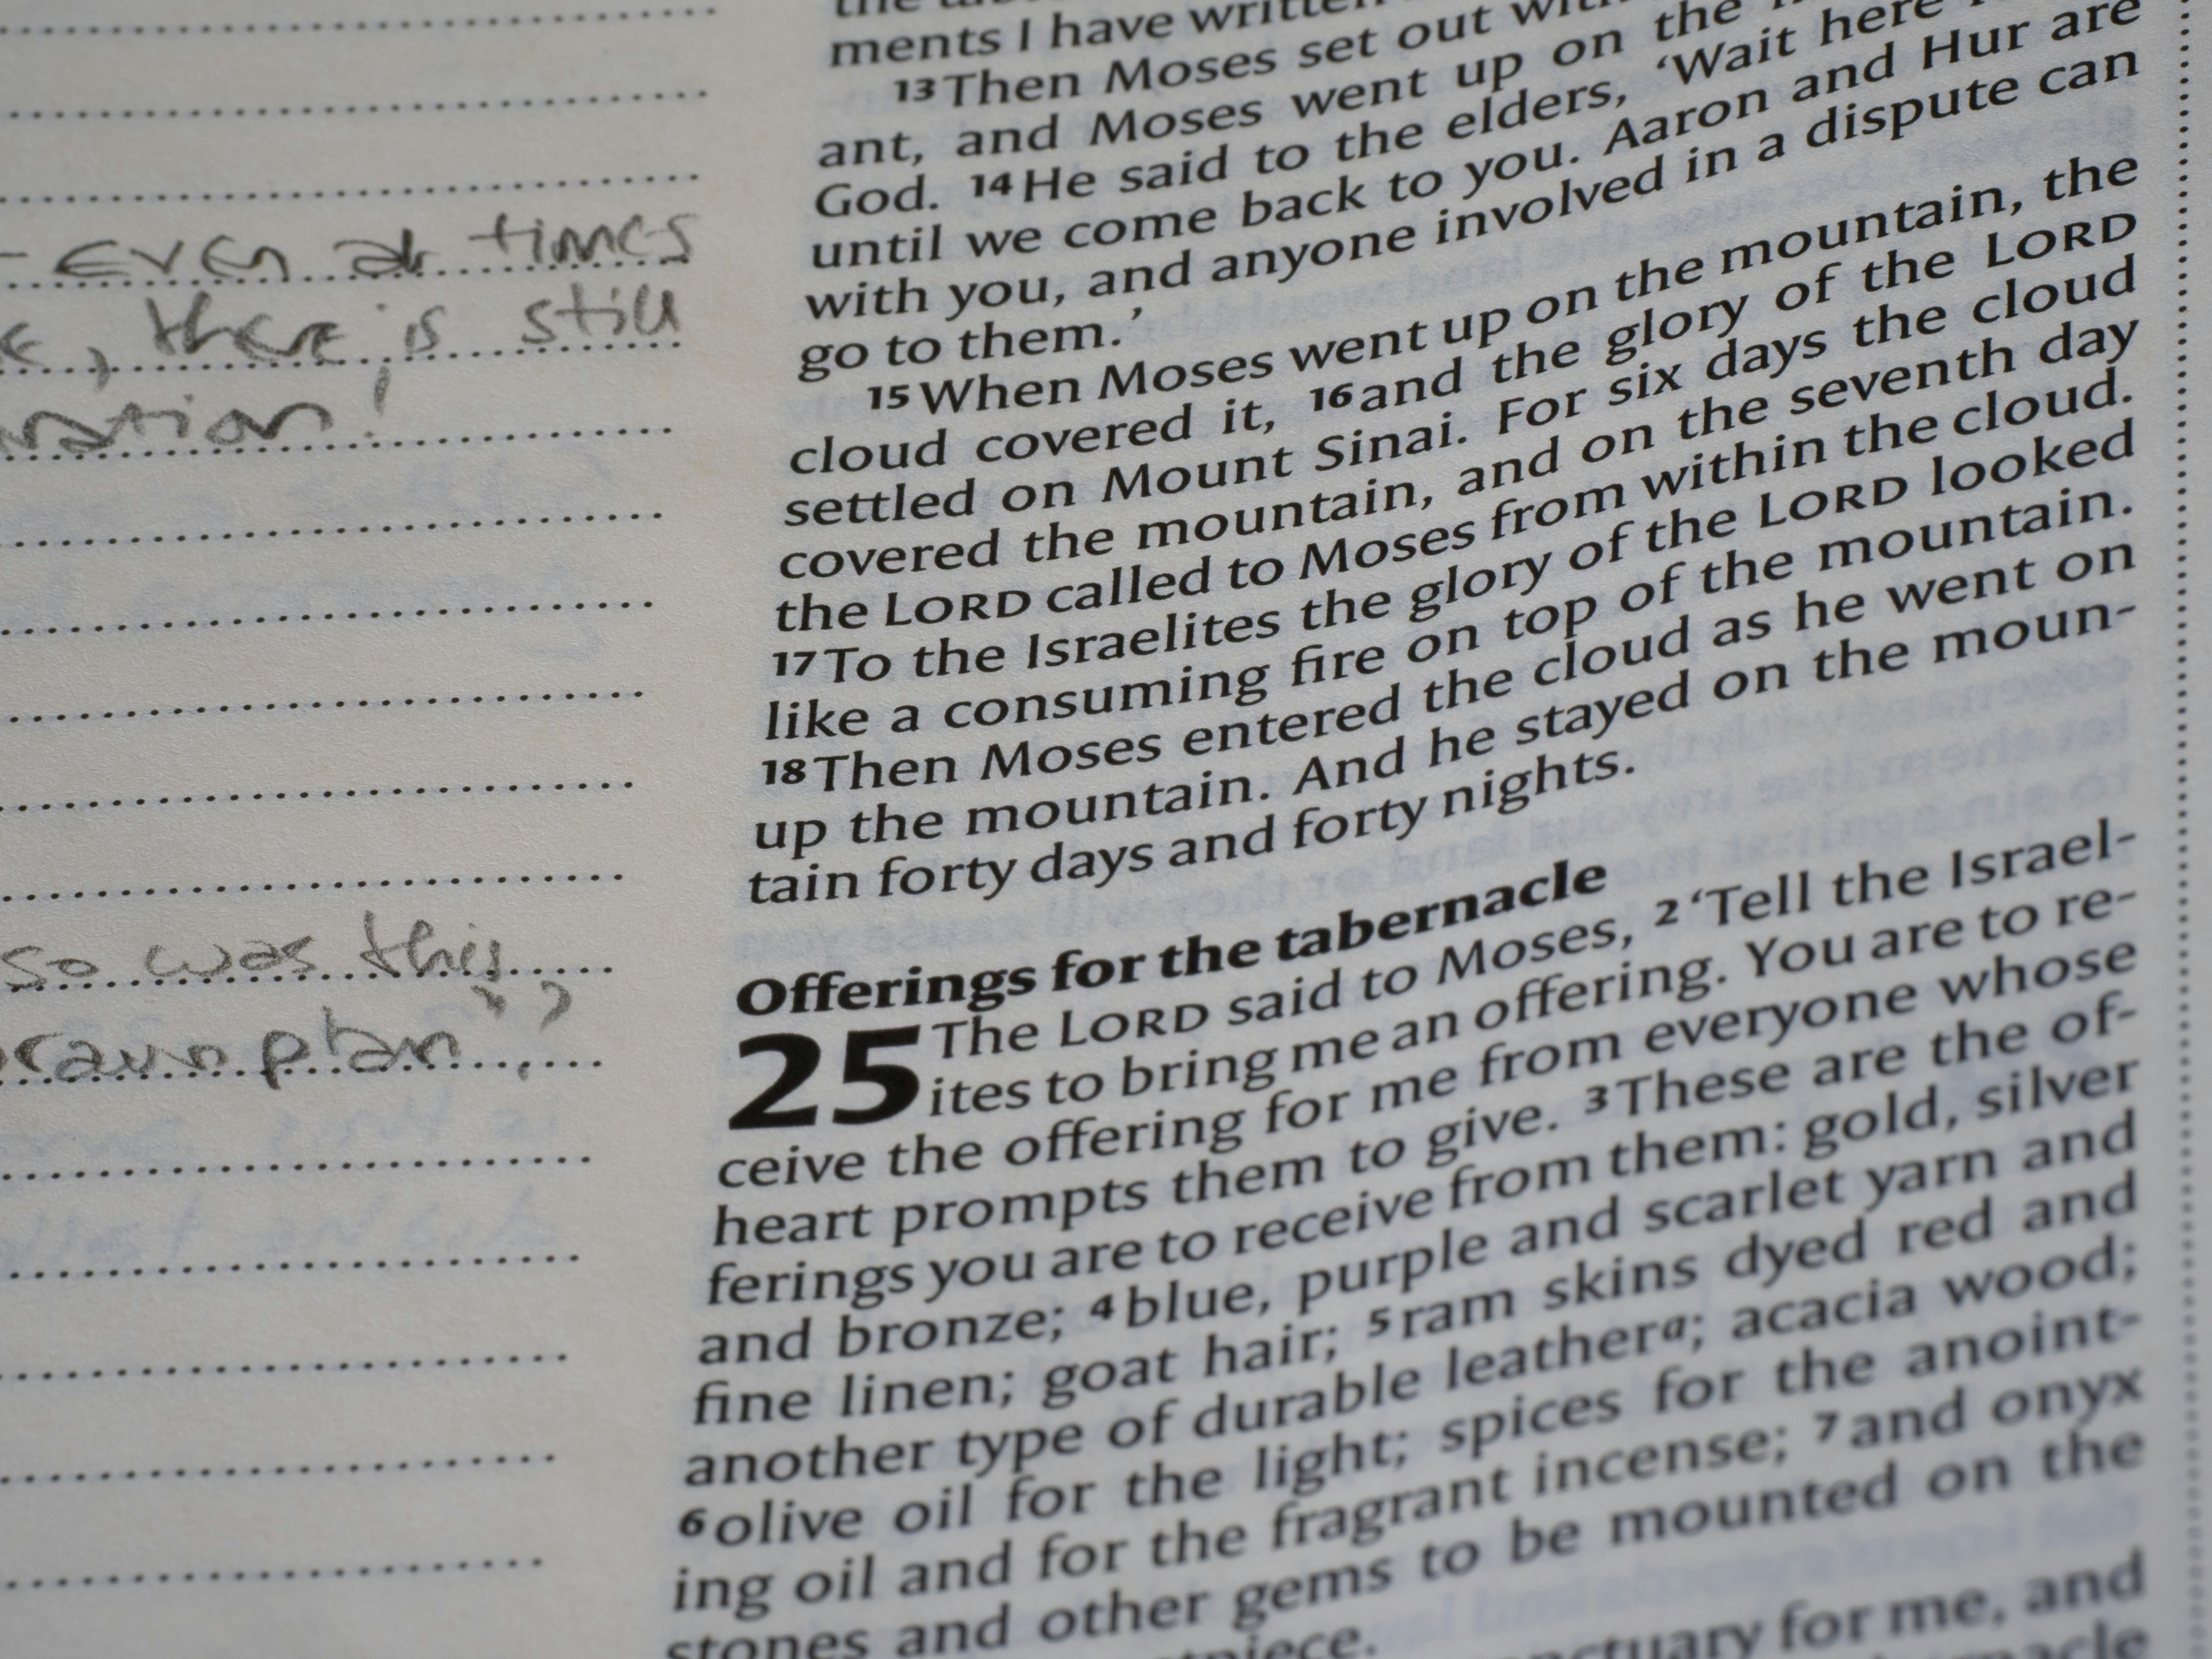 even at times
, there is still
so was this
plan"?
ments I have written
13 Then Moses set out with
ant, and Moses went up on the
God. 14 He said to the elders, 'Wait here
until we come back to you. Aaron and Hur are
with you, and anyone involved in a dispute can
go to them.'
15 When Moses went up on the mountain, the
cloud covered it, 16 and the glory of the LORD
settled on Mount Sinai. For six days the cloud
covered the mountain, and on the seventh day
the LORD called to Moses from within the cloud.
17 To the Israelites the glory of the LORD looked
like a consuming fire on top of the mountain.
18 Then Moses entered the cloud as he went on
up the mountain. And he stayed on the moun-
tain forty days and forty nights.
Offerings for the tabernacle
25 The LORD said to Moses, 2 'Tell the Israel-
ites to bring me an offering. You are to re-
ceive the offering for me from everyone whose
heart prompts them to give. 3 These are the of-
ferings you are to receive from them: gold, silver
and bronze; 4 blue, purple and scarlet yarn and
fine linen; goat hair; 5 ram skins dyed red and
another type of durable leather a; acacia wood;
6 olive oil for the light; spices for the anoint-
ing oil and for the fragrant incense; 7 and onyx
stones and other gems to be mounted on the
for me, and